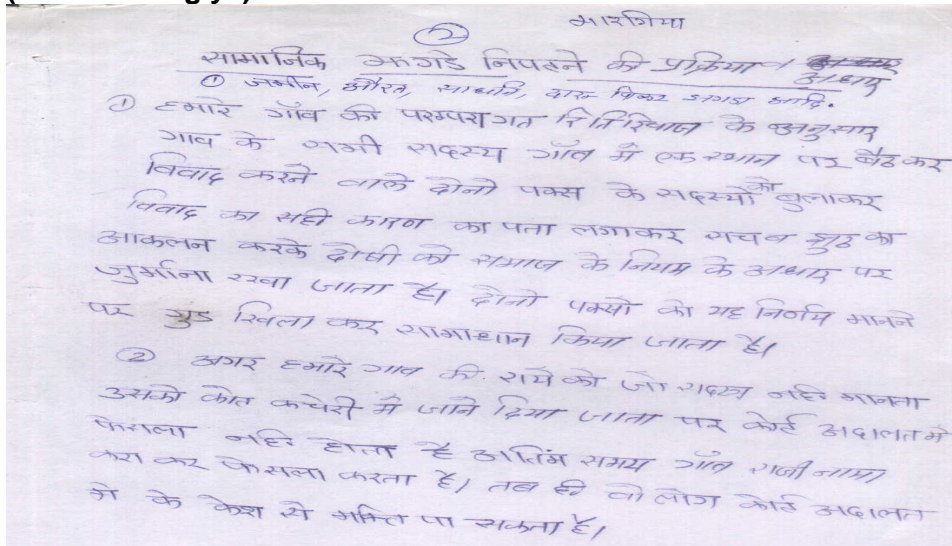 मारगिया
②
सामाजिक झगडे निपटने की प्रक्रिया । अधार
① जमीन, औरत, दारू पिकर झगडा आदि.
① हमारे गाँव की परम्परागत रितिरिवाज के अनुसार
गाव के सभी सदस्य गाँव मे एक स्थान पर बैठ कर
विवाद करने वाले दोनो पक्स के सदस्यो को बुलाकर
विवाद का सही कारण का पता लगाकर सच व झुठ का
आकलन करके दोषी को समाज के नियम के अधार पर
जुर्माना रखा जाता है। दोनो पक्सो का यह निर्णय मानने
पर गुड खिला कर सामाधान किया जाता है।
② अगर हमारे गाव की राये को जो सदस्य नहि मानता
उसको कोत कचेरी मे जाने दिया जाता पर कोर्ट अदालत मे
फेसला नहि होता है अतिंम समय गाँव राजी नामा
करा कर फेसला करता है। तब ही वो लोग कोर्ट अदालत
मे के केश से मुक्ति पा सकता है।